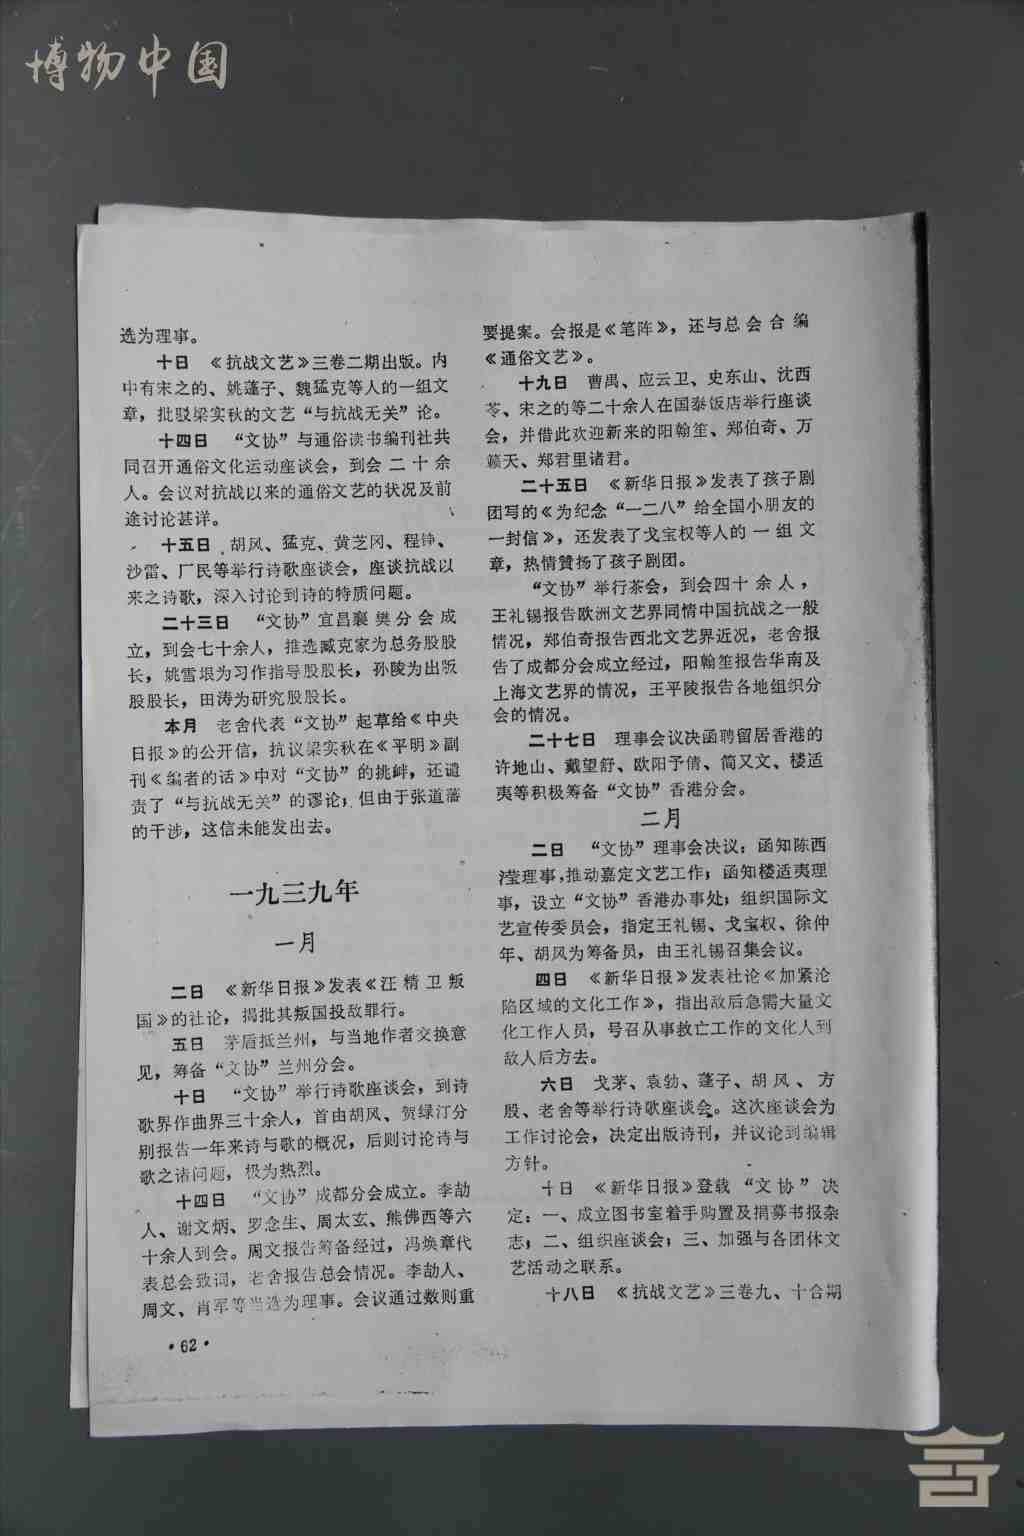 博物中国
选为理事。
十日 《抗战文艺》三卷二期出版。内
中有宋之的、姚蓬子、魏猛克等人的一组文
章，批驳梁实秋的文艺“与抗战无关”论。
十四日 “文协”与通俗读书编刊社共
同召开通俗文化运动座谈会，到会二十余
人。会议对抗战以来的通俗文艺的状况及前
途讨论甚详。
十五日 胡风、猛克、黄芝冈、程铮、
沙雷、厂民等举行诗歌座谈会，座谈抗战以
来之诗歌，深入讨论到诗的特质问题。
二十三日 “文协”宜昌襄樊分会成
立，到会七十余人，推选臧克家为总务股股
长，姚雪垠为习作指导股股长，孙陵为出版
股股长，田涛为研究股股长。
本月 老舍代表“文协”起草给《中央
日报》的公开信，抗议梁实秋在《平明》副
刊《编者的话》中对“文协”的挑衅，还谴
责了“与抗战无关”的谬论；但由于张道藩
的干涉，这信未能发出去。
一九三九年
一月
二日 《新华日报》发表《汪精卫叛
国》的社论，揭批其叛国投敌罪行。
五日 茅盾抵兰州，与当地作者交换意
见，筹备“文协”兰州分会。
十日 “文协”举行诗歌座谈会，到诗
歌界作曲界三十余人，首由胡风、贺绿汀分
别报告一年来诗与歌的概况，后则讨论诗与
歌之诸问题，极为热烈。
十四日 “文协”成都分会成立。李劼
人、谢文炳、罗念生、周太玄、熊佛西等六
十余人到会。周文报告筹备经过，冯焕章代
表总会致词，老舍报告总会情况。李劼人、
周文、肖军等当选为理事。会议通过数则重
·62·
要提案。会报是《笔阵》，还与总会合编
《通俗文艺》。
十九日 曹禺、应云卫、史东山、沈西
苓、宋之的等二十余人在国泰饭店举行座谈
会，并借此欢迎新来的阳翰笙、郑伯奇、万
籁天、郑君里诸君。
二十五日 《新华日报》发表了孩子剧
团写的《为纪念“一二八”给全国小朋友的
一封信》，还发表了戈宝权等人的一组文
章，热情赞扬了孩子剧团。
“文协”举行茶会，到会四十余人，
王礼锡报告欧洲文艺界同情中国抗战之一般
情况，郑伯奇报告西北文艺界近况，老舍报
告了成都分会成立经过，阳翰笙报告华南及
上海文艺界的情况，王平陵报告各地组织分
会的情况。
二十七日 理事会议决函聘留居香港的
许地山、戴望舒、欧阳予倩、简又文、楼适
夷等积极筹备“文协”香港分会。
二月
二日 “文协”理事会决议：函知陈西
滢理事，推动嘉定文艺工作；函知楼适夷理
事，设立“文协”香港办事处；组织国际文
艺宣传委员会，指定王礼锡、戈宝权、徐仲
年、胡风为筹备员，由王礼锡召集会议。
四日 《新华日报》发表社论《加紧沦
陷区域的文化工作》，指出敌后急需大量文
化工作人员，号召从事救亡工作的文化人到
敌人后方去。
六日 戈茅、袁勃、蓬子、胡风、方
殷、老舍等举行诗歌座谈会。这次座谈会为
工作讨论会，决定出版诗刊，并议论到编辑
方针。
十日 《新华日报》登载“文协”决
定：一、成立图书室着手购置及捐募书报杂
志；二、组织座谈会；三、加强与各团体文
艺活动之联系。
十八日 《抗战文艺》三卷九、十合期